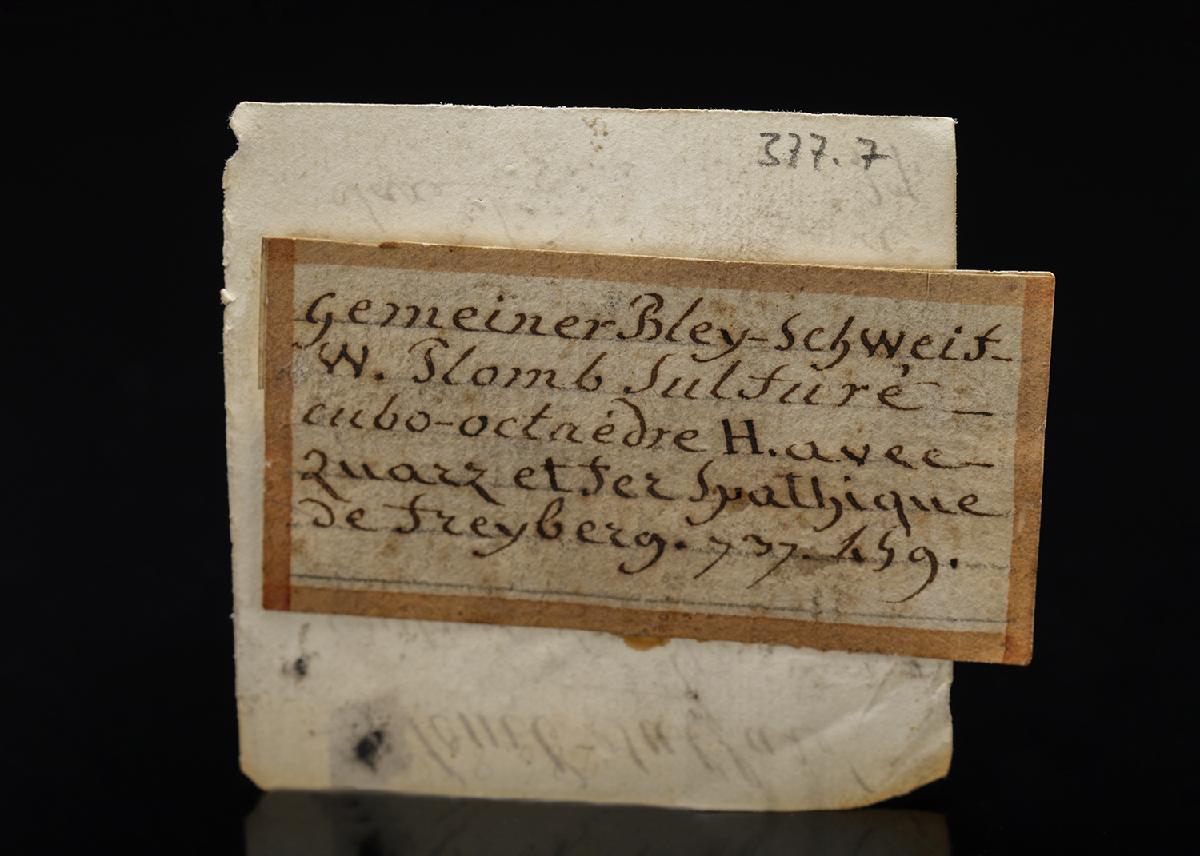 377.7
Gemeiner Bley-Schweif-
W. Plomb Sulfuré -
cubo-octaédre H. avec-
Quarz et Fer Spathique
de Freyberg. 737. 459.